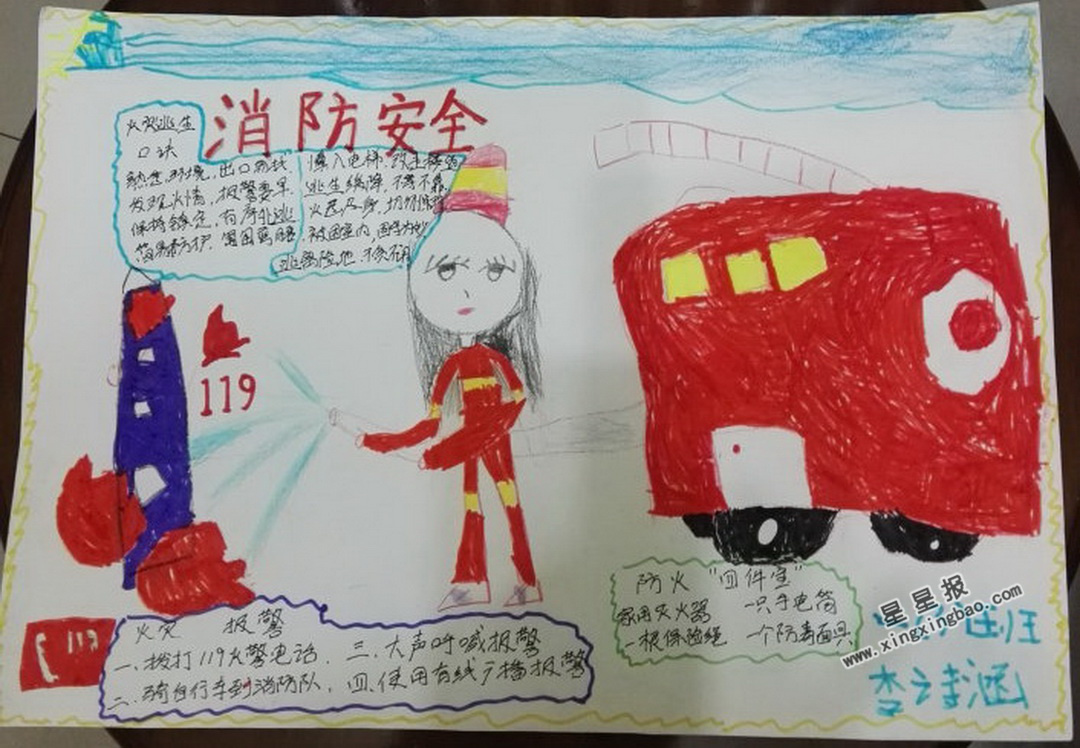 消防安全
火灾逃生
口诀
熟悉环境，出口易找
发现火情，报警要早
保持镇定，有序外逃
简易防护，
慎入电梯，改走楼道
逃生缓降，
火已及身，切勿
被困室内，
逃离险地，不
119
火灾 报警
一、拨打119火警电话，三、大声呼喊报警
二、骑自行车到消防队，四、使用有线广播报警
119
防火"四件宝"
家用灭火器 一只手电筒
一根保险绳 一个防毒面具
班
李诗涵
星星报
www.xingxingbao.com